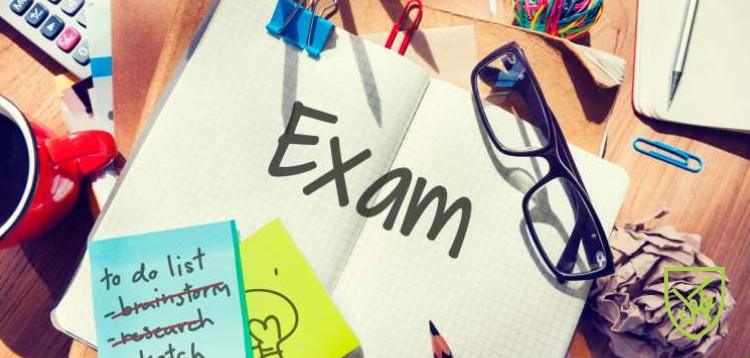 Exam
to do list
- brainstorm
- research